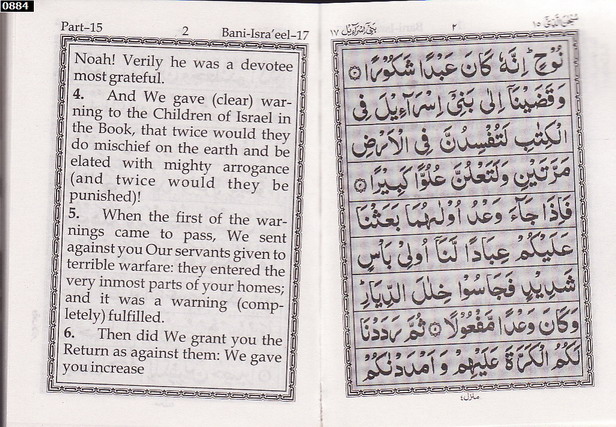 0884
Part–15 2 Bani-Isra'eel–17
Noah! Verily he was a devotee
most grateful.
4. And We gave (clear) war-
ning to the Children of Israel in
the Book, that twice would they
do mischief on the earth and be
elated with mighty arrogance
(and twice would they be
punished)!
5. When the first of the war-
nings came to pass, We sent
against you Our servants given to
terrible warfare: they entered the
very inmost parts of your homes;
and it was a warning (comp-
letely) fulfilled.
6. Then did We grant you the
Return as against them: We gave
you increase
بنی اسرآءیل ۱۷ ۲ سبحٰن الذی ۱۵
نُوْحٍ ؕ اِنَّهٗ كَانَ عَبْدًا شَكُوْرًا ۝۳
وَقَضَیْنَاۤ اِلٰی بَنِیْۤ اِسْرَآءِیْلَ فِی
الْكِتٰبِ لَتُفْسِدُنَّ فِی الْاَرْضِ
مَرَّتَیْنِ وَلَتَعْلُنَّ عُلُوًّا كَبِیْرًا ۝۴
فَاِذَا جَآءَ وَعْدُ اُوْلٰىهُمَا بَعَثْنَا
عَلَیْكُمْ عِبَادًا لَّنَاۤ اُولِیْ بَاْسٍ
شَدِیْدٍ فَجَاسُوْا خِلٰلَ الدِّیَارِ ؕ
وَكَانَ وَعْدًا مَّفْعُوْلًا ۝۵ ثُمَّ رَدَدْنَا
لَكُمُ الْكَرَّةَ عَلَیْهِمْ وَ اَمْدَدْنٰكُمْ
منزل ٤